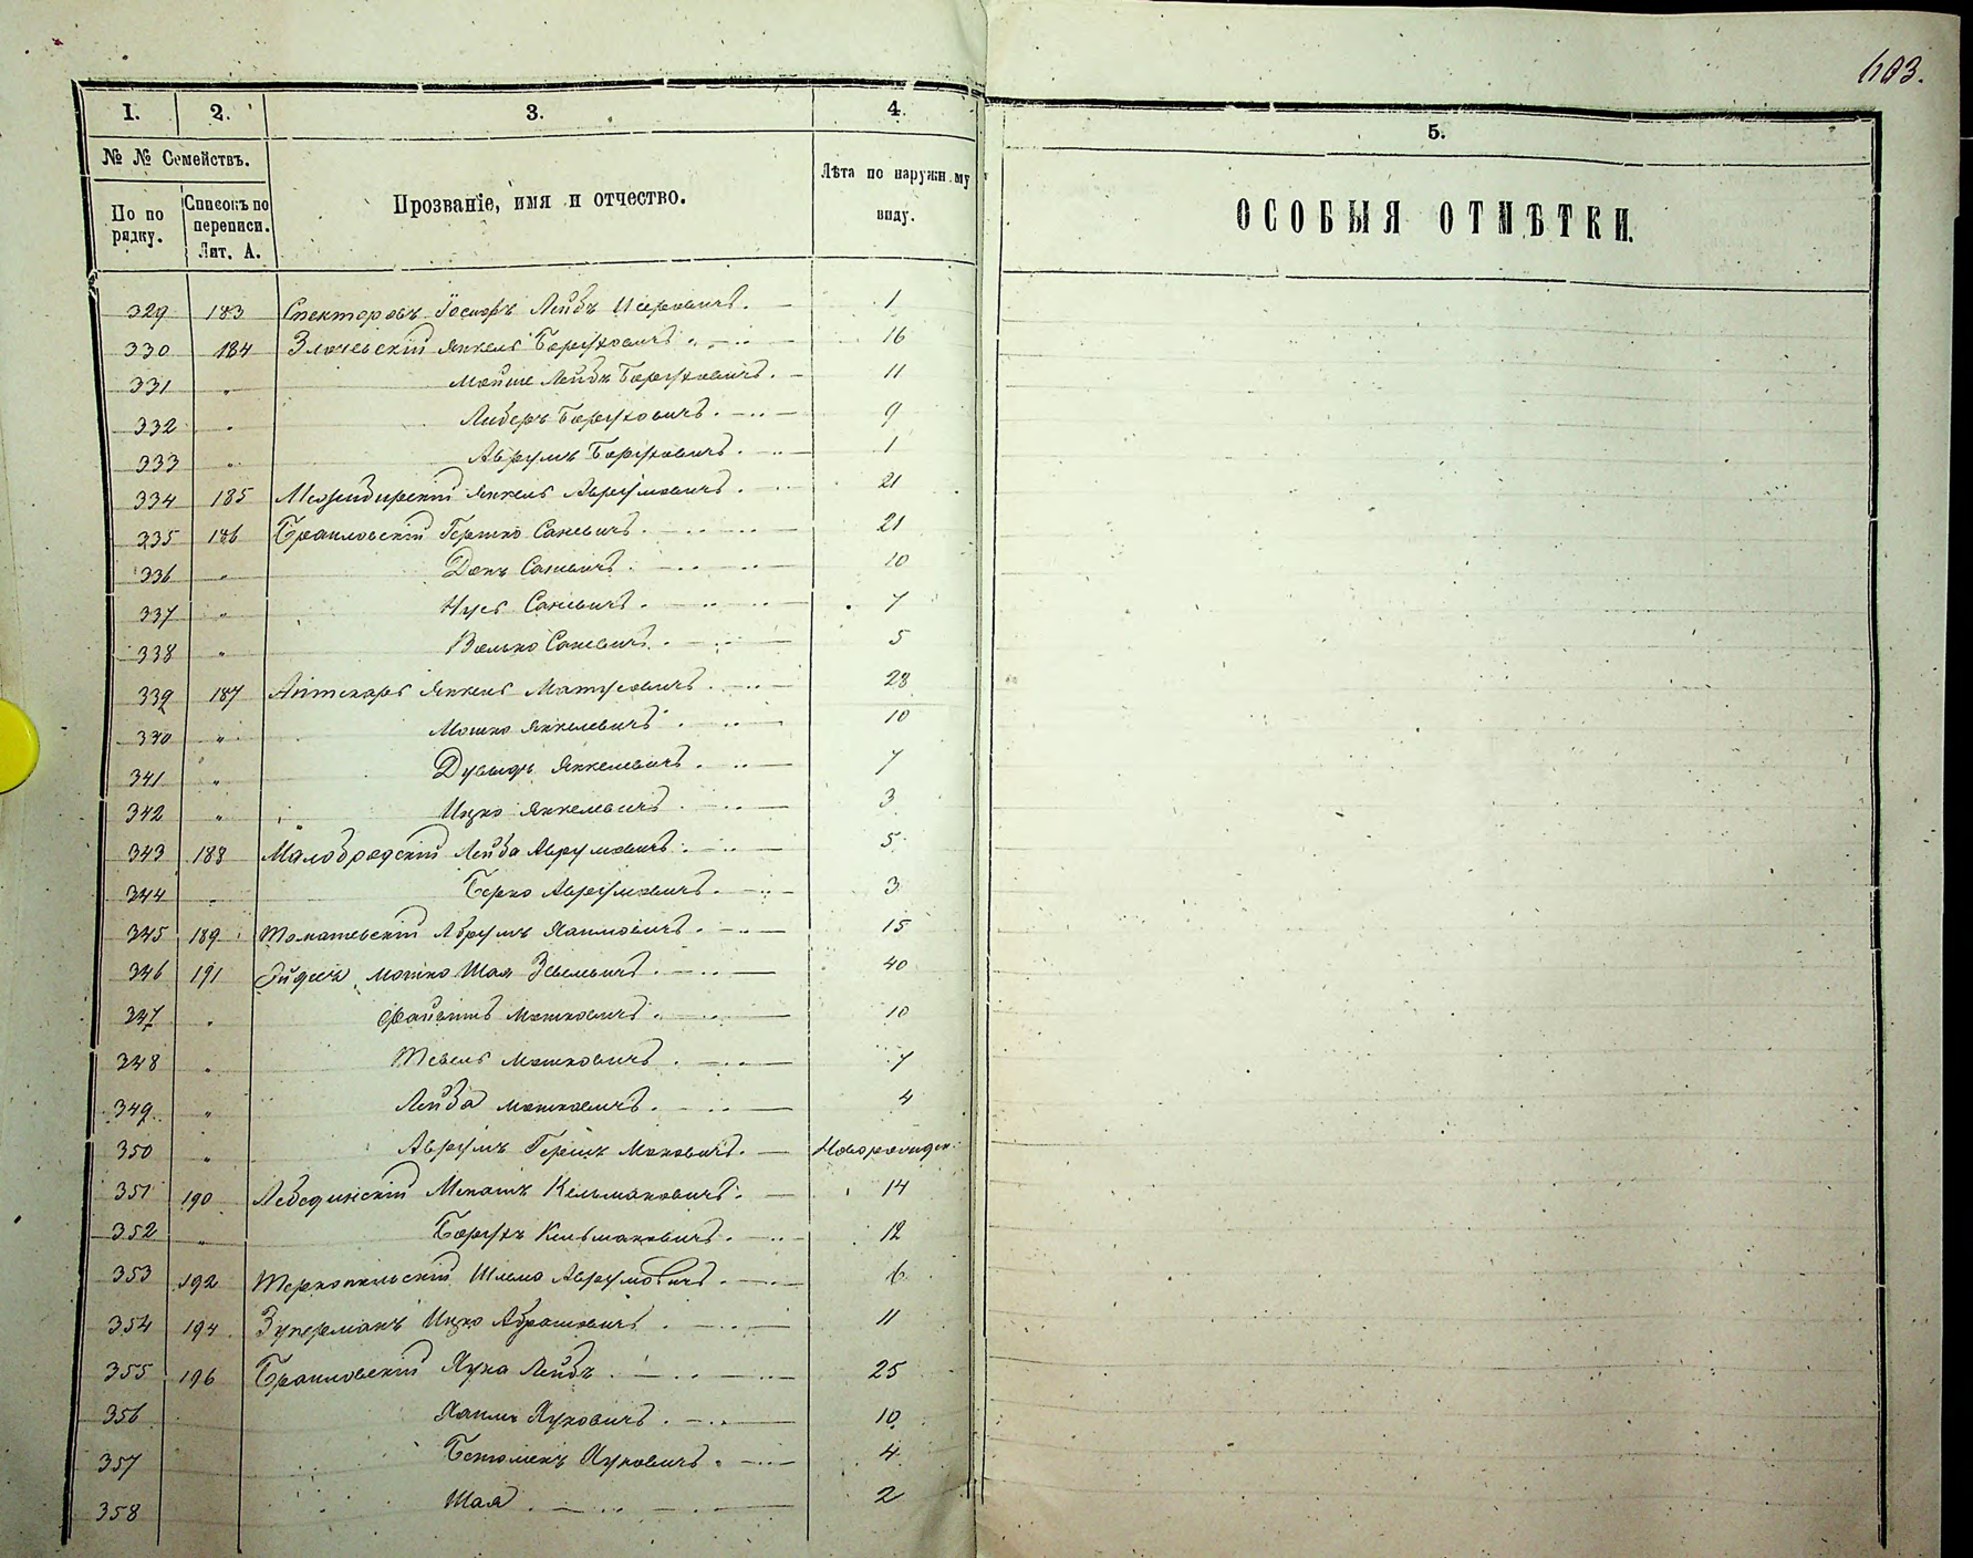 603.
I. 2. 3. 4. 5.
№ № Семействъ.
По по рядку.
Списокъ по переписи. Лит. А.
Прозваніе, имя и отчество.
Лѣта по наружн му виду.
ОСОБЫЯ ОТМѢТКИ.
329 183 Спекторовъ Іосифъ Лейбъ Исеровичъ. — 1
330 184 Злочевскій Янкель Баруховичъ " — 16
331 " Мойше Лейбъ Баруховичъ. — 11
332 " Либеръ Баруховичъ. — 9
333 " Аврумъ Баруховичъ. — 1
334 185 Межибирскій Янкель Аврумовичъ. 21
335 186 Браиловскій Гершко Саневичъ. — 21
336 " Данъ Саневичъ. — 10
337 " Нусъ Саневичъ. — 7
338 " Волько Саневичъ. — 5
339 187 Аптекарь Янкель Матусовичъ. — 28
340 " Мошко Янкелевичъ. 10
341 " Дувыдъ Янкелевичъ. — 7
342 " Ицко Янкелевичъ. — 3
343 188 Малобродскій Лейба Аврумовичъ. — 5
344 " Берко Аврумовичъ. — 3
345 189 Томашевскій Абрумъ Хаимовичъ. — 15
346 191 Мошко Шая — 40
347 " Файвишъ Мошковичъ. — 10
348 " Тевель Мошковичъ. — 7
349 " Лейба Мошковичъ. — 4
350 " Аврумъ Гершъ Мошковичъ. — Новорожден.
351 190 Лебединскій Менашъ Кельмановичъ. — 14
352 " Барухъ Кельмановичъ. — 12
353 192 Тернопольскій Шлемо Аврумовичъ. — 6
354 194 Зуперманъ Ицко Абрамовичъ. — 11
355 196 Браиловскій Нуха Лейбъ. — 25
356 Хаимъ Нуховичъ. — 10
357 Нуховичъ. — 4
358 Шая — 2